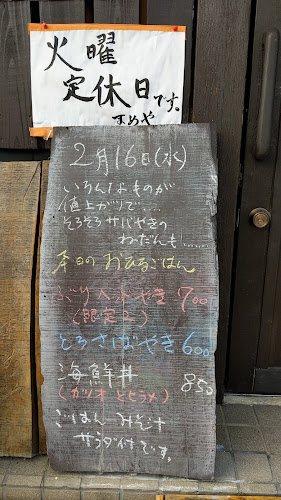 火曜
定休日です。
まめや
2月16日(水)
いろんなものが
値上がりで....
そろそろサバやきの
ねだんも......
本日のおひるごはん
ぶりへぶやき 700
(限定2)
とろさばやき 600
海鮮丼 850
(カツオとヒラメ)
ごはん みそ汁
サラダ付です。